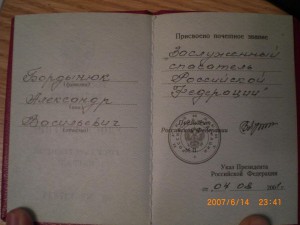 Бордынюк
(фамилия)
Александр
(имя)
Васильевич
(отчество)
Присвоено почетное звание
„Заслуженный
спасатель
Российской
Федерации"
Президент
Российской Федерации
Указ Президента
Российской Федерации
04
2007/6/14 23:41